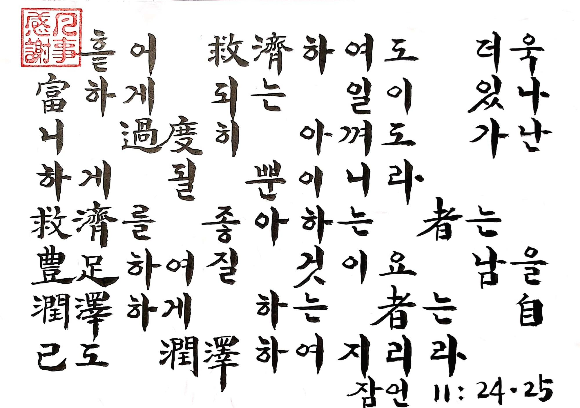 凡事感謝
흩어 救濟하여도 더욱
富하게 되는 일이 있나
니 過度히 아껴도 가난
하게 될 뿐이니라.
救濟를 좋아하는 者는
豊足하여질 것이요 남을
潤澤하게 하는 者는 自
己도 潤澤하여지리라.
잠언 11:24·25